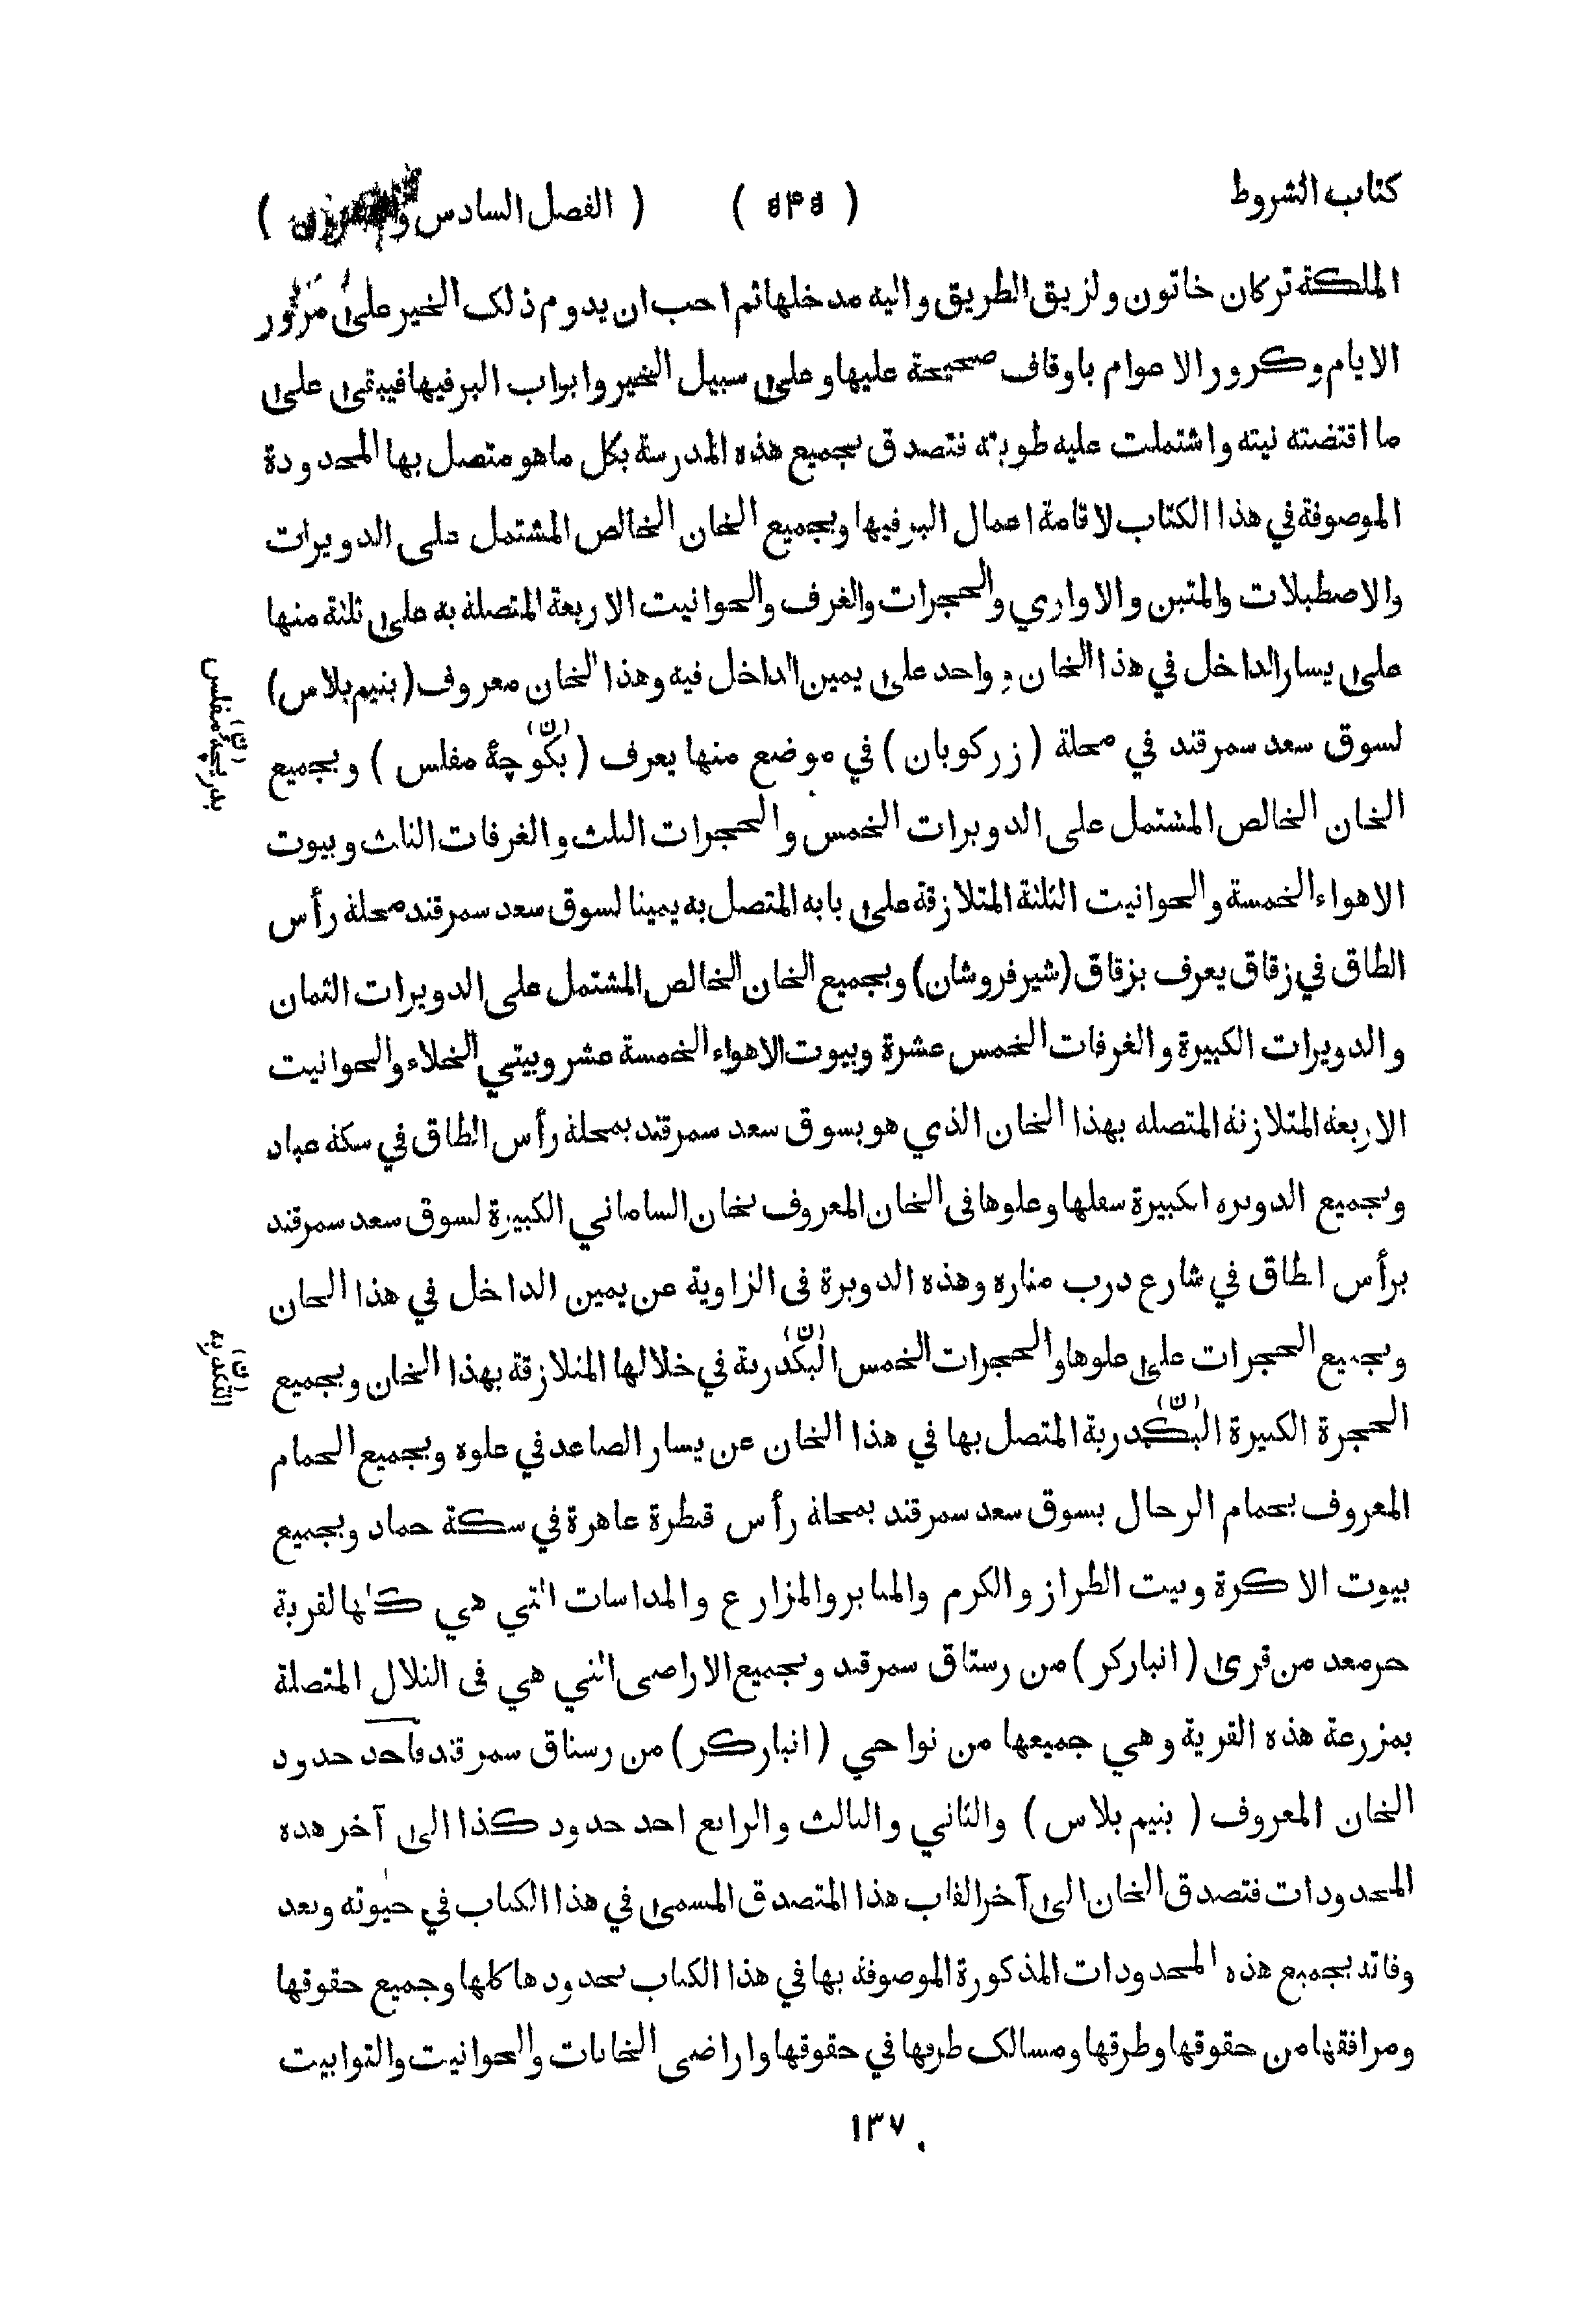 كتاب الشروط ( ٥٣٥ ) ( الفصل السادس و )
الملكة تركان خاتون ولزيق الطريق واليه مدخلها ثم احب ان يدوم ذلك الخير على مرور
الايام وكرور الاعوام باوقاف صحيحة عليها وعلى سبيل الخير وابواب البر فيها فيبقى على
ما اقتضته نيته واشتملت عليه طويته فتصدق بجميع هذه المدرسة بكل ماهو متصل بها المحدودة
الموصوفة في هذا الكتاب لاقامة اعمال البر فيها وبجميع الخان الخالص المشتمل على الدويرات
والاصطبلات والمتبن والاواري والحجرات والغرف والحوانيت الاربعة المتصلة به على ثلثة منها
على يسار الداخل في هذا الخان وواحد على يمين الداخل فيه وهذا الخان معروف (بنيم بلاس)
لسوق سعد سمرقند في محلة ( زركوبان ) في موضع منها يعرف ( بكوچۀ مفلس ) وبجميع
(ن)
(ن)
بدريچۀ مفلس
الخان الخالص المشتمل على الدويرات الخمس والحجرات الثلث والغرفات الثلث وبيوت
الاهواء الخمسة والحوانيت الثلثة المتلازقة على بابه المتصل به يمينا لسوق سعد سمرقند محلة رأس
الطاق في زقاق يعرف بزقاق (شير فروشان) وبجميع الخان الخالص المشتمل على الدويرات الثمان
والدويرات الكبيرة والغرفات الخمس عشرة وبيوت الاهواء الخمسة عشر وبيتي الخلاء والحوانيت
الاربعة المتلازقة المتصلة بهذا الخان الذي هو بسوق سعد سمرقند بمحلة رأس الطاق في سكة عباد
وبجميع الدويره الكبيرة سفلها وعلوها فى الخان المعروف بخان الساماني الكبيرة لسوق سعد سمرقند
برأس الطاق في شارع درب مناره وهذه الدويرة فى الزاوية عن يمين الداخل في هذا الخان
وبجميع الحجرات على علوها والحجرات الخمس البكدرية في خلالها المتلازقة بهذا الخان وبجميع
(ن)
(ن)
التكدريه
الحجرة الكبيرة البكدرية المتصل بها في هذا الخان عن يسار الصاعد في علوه وبجميع الحمام
(ن)
المعروف بحمام الرجال بسوق سعد سمرقند بمحلة رأس قنطرة عاهرة في سكة حماد وبجميع
بيوت الاكرة وبيت الطراز والكرم والمنابر والمزارع والمداسات التي هي كلها لقرية
حرمعد من قرى ( انباركر ) من رستاق سمرقند وبجميع الاراضى التي هي فى التلال المتصلة
بمزرعة هذه القرية وهي جميعها من نواحي ( انباركر ) من رستاق سمرقند فاحد حدود
الخان المعروف ( بنيم بلاس ) والثاني والثالث والرابع احد حدود كذا الى آخر هذه
المحدودات فتصدق الخان الى آخر الفاب هذا المتصدق المسمى في هذا الكتاب في حيوته وبعد
وفاته بجميع هذه المحدودات المذكورة الموصوفة بها في هذا الكتاب بحدودها كلها وجميع حقوقها
ومرافقها من حقوقها وطرقها ومسالك طرقها في حقوقها واراضى الخانات والحوانيت والتوابيت
١٣٧